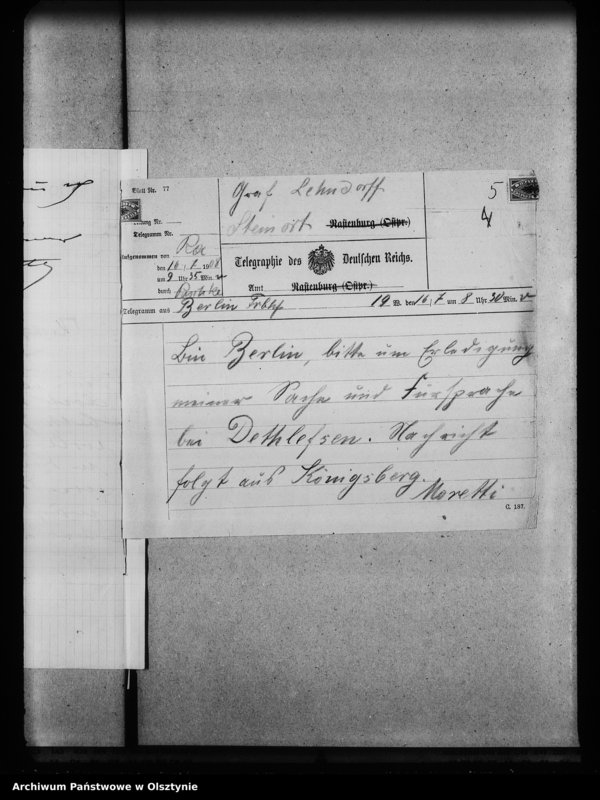 Blatt Nr. 77
Graf Lehndorff
5
Leitung Nr.
Steinort Rastenburg (Ostpr.)
4
Telegramm Nr.
Aufgenommen von
Telegraphie des Deutschen Reichs.
den 16/7 1908
um 9 Uhr 35 Min. v
Amt Rastenburg (Ostpr.)
durch
Telegramm aus Berlin 19 W. den 16/7 um 8 Uhr 30 Min. v
Bin Berlin, bitte um Erledigung
meiner Sache und Fürsprache
bei Dethlefsen. Nachricht
folgt aus Königsberg.
Moretti
C. 187.
Archiwum Państwowe w Olsztynie